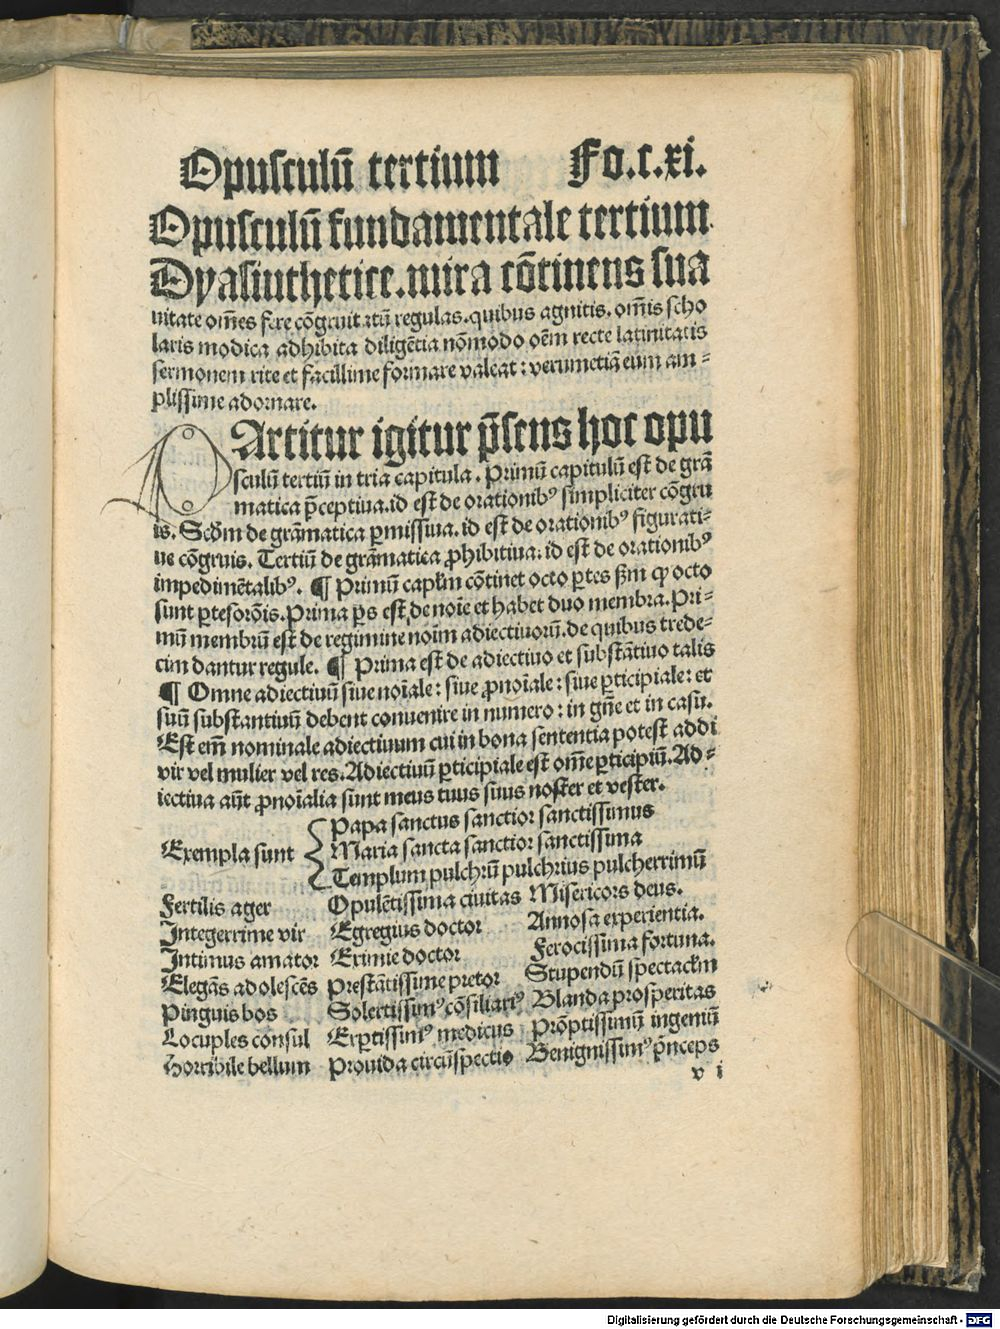 Opusculū tertium Fo.c.xi.
Opusculū fundamentale tertium
Dyasinthetice.mira cōtinens sua
uitate om̄es fere cōgruitatū regulas.quibus agnitis.om̄is scho
laris modica adhibita diligētia nōmodo oēm recte latinitatis
sermonem rite et facillime formare valeat: verumetiā eum am⸗
plissime adornare.
PArtitur igitur p̄sens hoc opu
sculū tertiū in tria capitula. Primū capitulū est de grā
matica p̄ceptiua.id est de orationibꝰ simpliciter cōgru
is. Scd̄m de grāmatica ꝑmissiua.id est de orationibꝰ figurati⸗
ue cōgruis. Tertiū de grāmatica ꝓhibitiua:id est de orationibꝰ
impedimētalibꝰ. ¶ Primū caplm̄ cōtinet octo ꝑtes ẜm ꝙ octo
sunt ꝑtesorōis.Prima ꝑs est de noīe et habet duo membra.Pri⸗
mū membrū est de regimine noīm adiectiuorū.de quibus trede⸗
cim dantur regule. ¶ Prima est de adiectiuo et substātiuo talis
¶ Omne adiectiuū siue noīale: siue ꝓnoīale: siue ꝑticipiale: et
suū substantiuū debent conuenire in numero: in gn̄e et in casu.
Est em̄ nominale adiectiuum cui in bona sententia potest addi
vir vel mulier vel res.Adiectiuū ꝑticipiale est om̄e ꝑticipiū.Ad⸗
iectiua aūt ꝓnoīalia sunt meus tuus suus noster et vester.
Papa sanctus sanctior sanctissimus
Exempla sunt Maria sancta sanctior sanctissima
Templum pulchrū pulchrius pulcherrimū
Fertilis ager Opulētissima ciuitas Misericors deus.
Integerrime vir Egregius doctor Annosa experientia.
Intimus amator Eximie doctor Ferocissima fortuna.
Elegās adolescēs Prestātissime pretor Stupendū spectaclm̄
Pinguis bos Solertissimꝰ cōsiliariꝰ Blanda prosperitas
Locuples consul Exꝑtissimꝰ medicus Prōptissimū ingeniū
Horribile bellum Prouida circūspectio Benignissimꝰ p̄nceps
v i
Digitalisierung gefördert durch die Deutsche Forschungsgemeinschaft - DFG